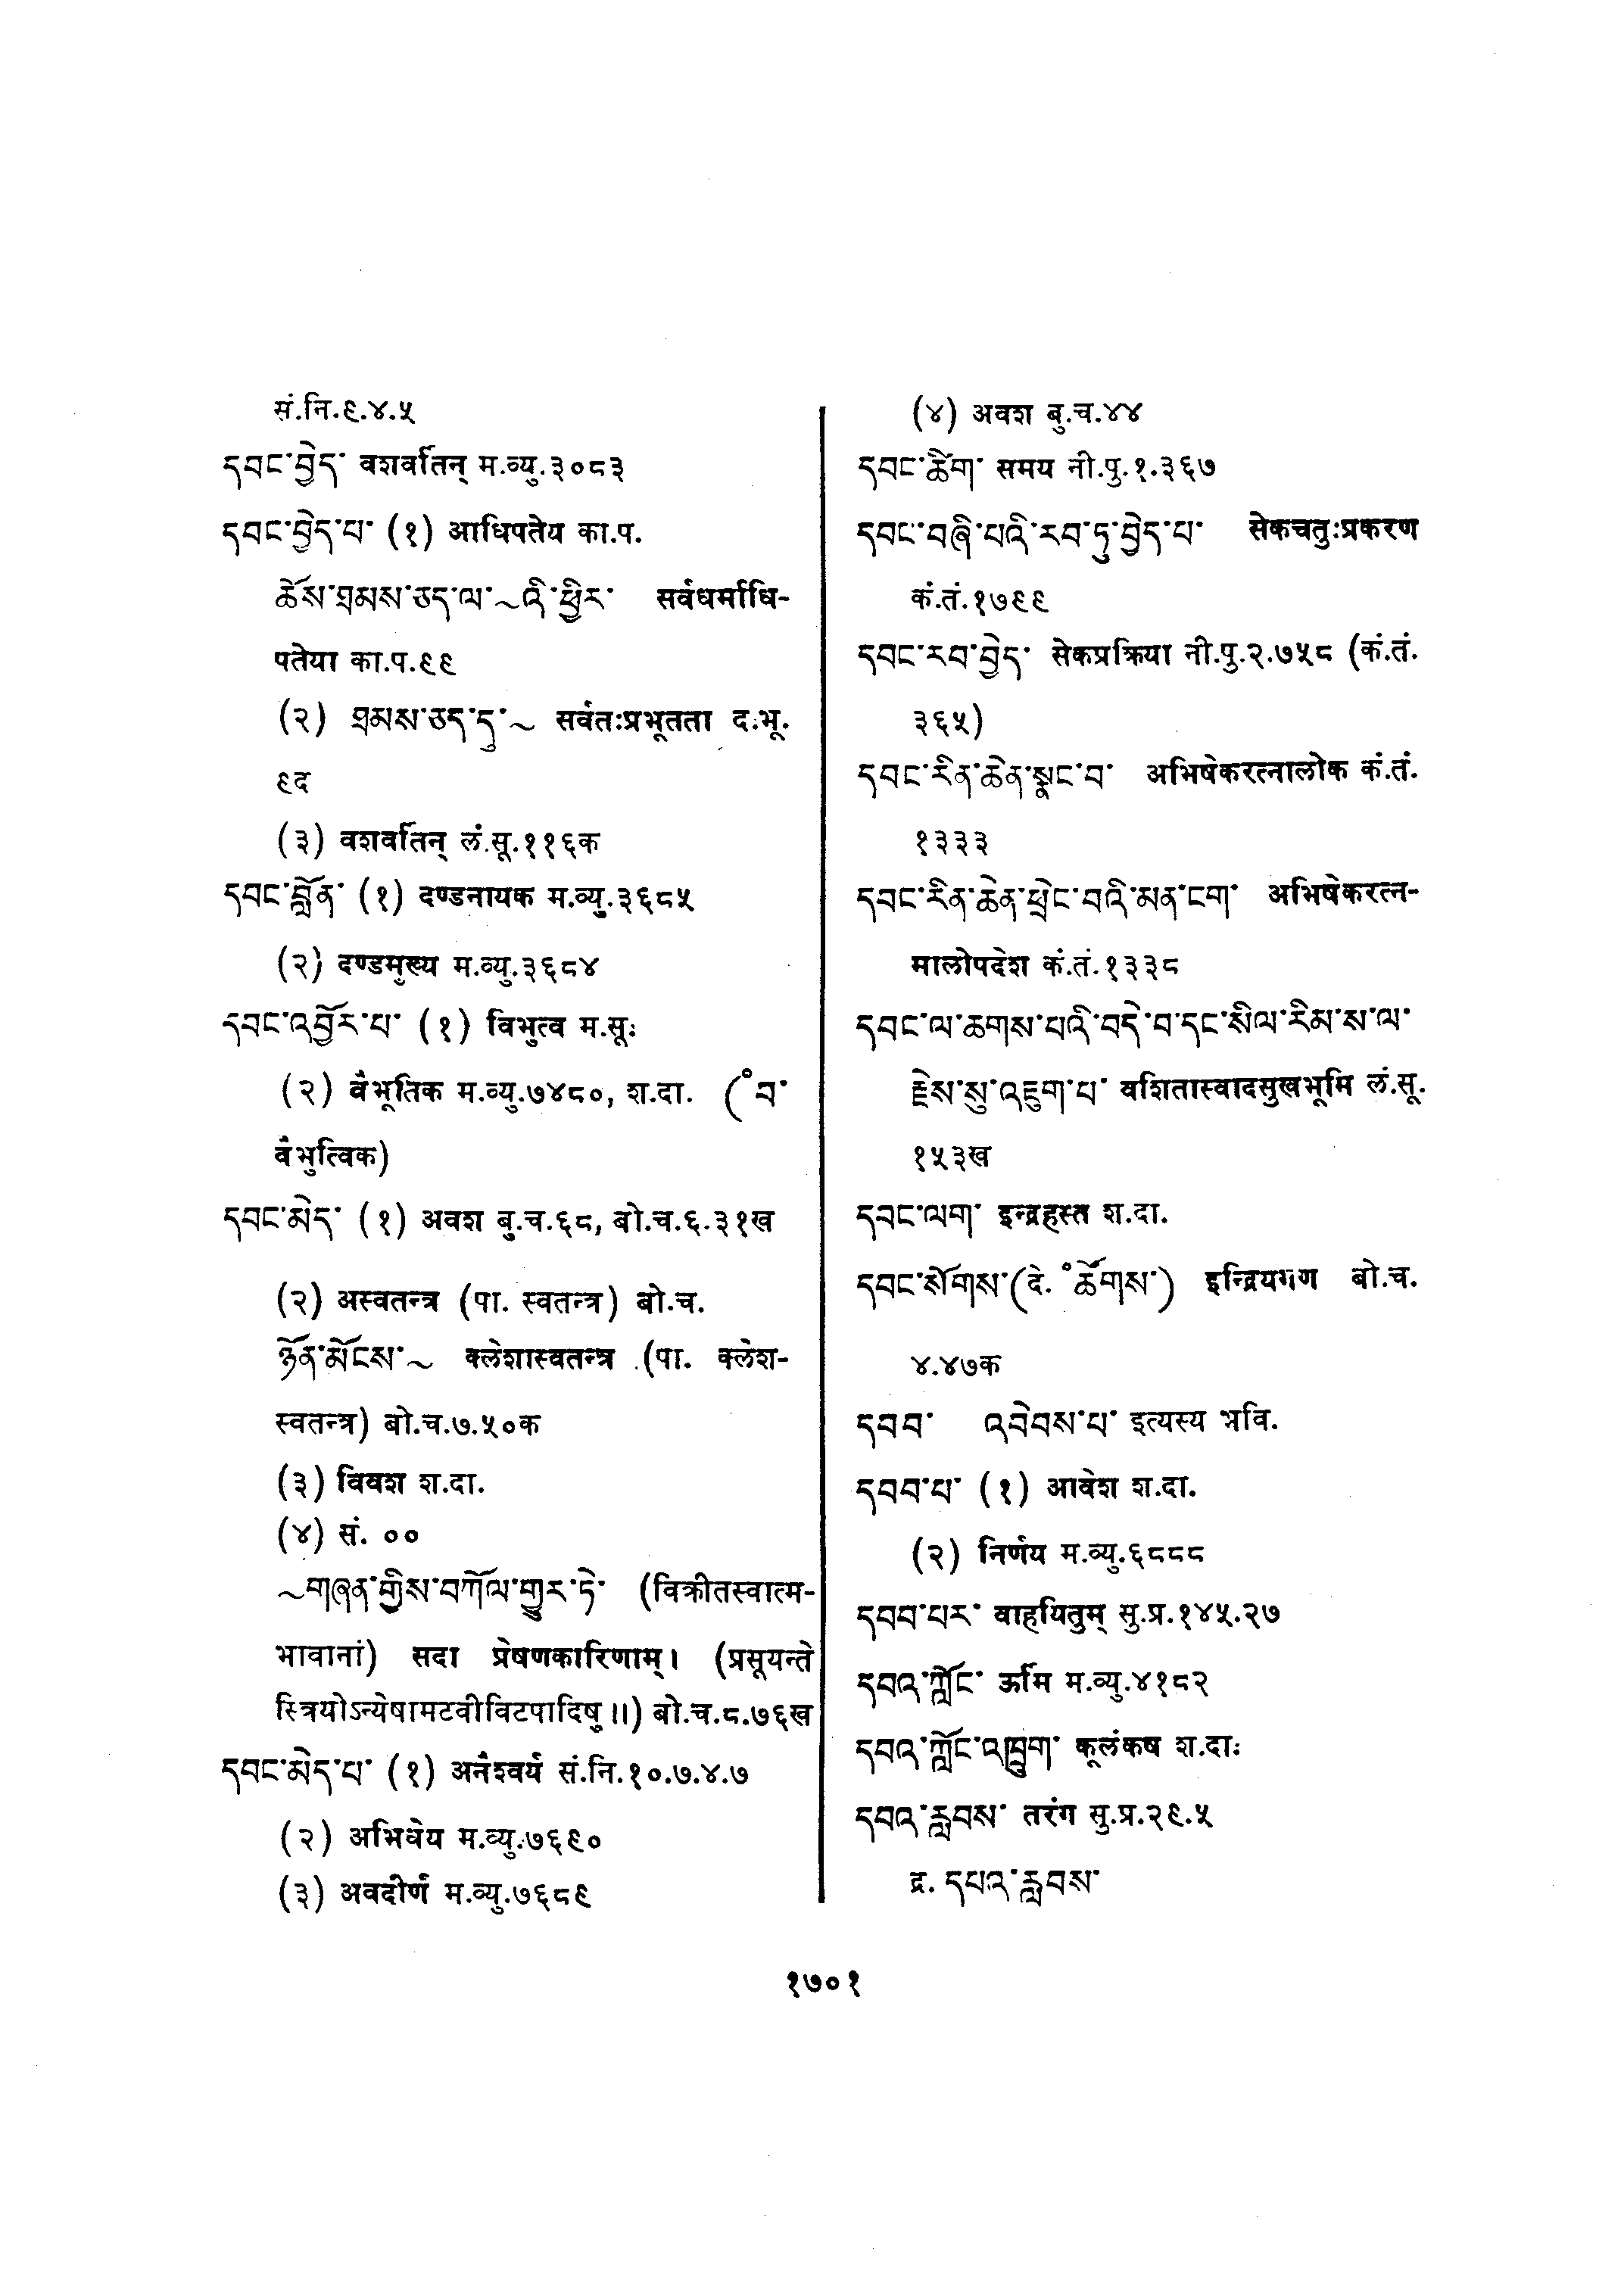 सं.नि.९.४.५
དབང་བྱེད་ वशवर्तिन् म.व्यु.३०८३
དབང་བྱེད་པ་ (१) आधिपतेय का.प.
ཆོས་ཐམས་ཅད་ལ་~འི་ཕྱིར་ सर्वधर्माधि-
पतेया का.प.९९
(२) ཐམས་ཅད་དུ་~ सर्वतःप्रभूतता द.भू.
९द
(३) वशवर्तिन् लं.सू.११६क
དབང་བློན་ (१) दण्डनायक म.व्यु.३६८५
(२) दण्डमुख्य म.व्यु.३६८४
དབང་འབྱོར་པ་ (१) विभुत्व म.सू.
(२) वैभूतिक म.व्यु.७४८०, श.दा. (॰བ་
वैभुत्विक)
དབང་མེད་ (१) अवश बु.च.६८, बो.च.६.३१ख
(२) अस्वतन्त्र (पा. स्वतन्त्र) बो.च.
ཉོན་མོངས་~ क्लेशास्वतन्त्र (पा. क्लेश-
स्वतन्त्र) बो.च.७.५०क
(३) विवश श.दा.
(४) सं. ००
~གཞན་གྱིས་བཀོལ་གྱུར་ཏེ་ (विक्रीतस्वात्म-
भावानां) सदा प्रेषणकारिणाम्। (प्रसूयन्ते
स्त्रियोऽन्येषामटवीविटपादिषु॥) बो.च.८.७६ख
དབང་མེད་པ་ (१) अनैश्वर्य सं.नि.१०.७.४.७
(२) अभिधेय म.व्यु.७६९०
(३) अवदीर्ण म.व्यु.७६८९
(४) अवश बु.च.४४
དབང་ཚིག་ समय नी.पु.१.३६७
དབང་བཞི་པའི་རབ་ཏུ་བྱེད་པ་ सेकचतुःप्रकरण
कं.तं.१७९९
དབང་རབ་བྱེད་ सेकप्रक्रिया नी.पु.२.७५८ (कं.तं.
३६५)
དབང་རིན་ཆེན་སྣང་བ་ अभिषेकरत्नालोक कं.तं.
१३३३
དབང་རིན་ཆེན་ཕྲེང་བའི་མན་ངག་ अभिषेकरत्न-
मालोपदेश कं.तं.१३३८
དབང་ལ་ཆགས་པའི་བདེ་བ་དང་སིལ་རིམ་ས་ལ་
རྗེས་སུ་འཇུག་པ་ वशितास्वादसुखभूमि लं.सू.
१५३ख
དབང་ལག་ इन्द्रहस्त श.दा.
དབང་སོགས་(दे. ॰ཚོགས་) इन्द्रियगण बो.च.
४.४७क
དབབ་ འབེབས་པ་ इत्यस्य भवि.
དབབ་པ་ (१) आवेश श.दा.
(२) निर्णय म.व्यु.६८८८
དབབ་པར་ वाहयितुम् सु.प्र.१४५.२७
དབའ་ཀློང་ ऊर्मि म.व्यु.४१८२
དབའ་ཀློང་འཁྲུག་ कूलंकष श.दा.
དབའ་རླབས་ तरंग सु.प्र.२९.५
द्र. དཔའ་རླབས་
१७०१